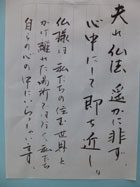 夫れ仏法遥かに非ず、
心中にして即ち近し。
仏様は私たちの住む世界と
かけ離れた場所ではなく私たち
自らの心の中にいらっしゃいます。